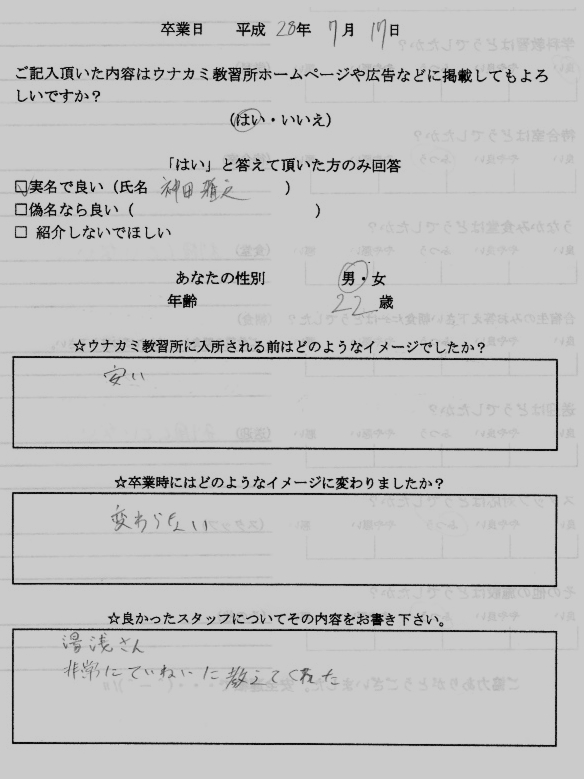 卒業日 平成 28年 7月 17日
ご記入頂いた内容はウナカミ教習所ホームページや広告などに掲載してもよろ
しいですか？
（はい・いいえ）
「はい」と答えて頂いた方のみ回答
□実名で良い（氏名 神田雅之 ）
□偽名なら良い（ ）
□ 紹介しないでほしい
あなたの性別 男・女
年齢 22 歳
☆ウナカミ教習所に入所される前はどのようなイメージでしたか？
安い
☆卒業時にはどのようなイメージに変わりましたか？
変わらない
☆良かったスタッフについてその内容をお書き下さい。
湯浅さん
非常にていねいに教えてくれた